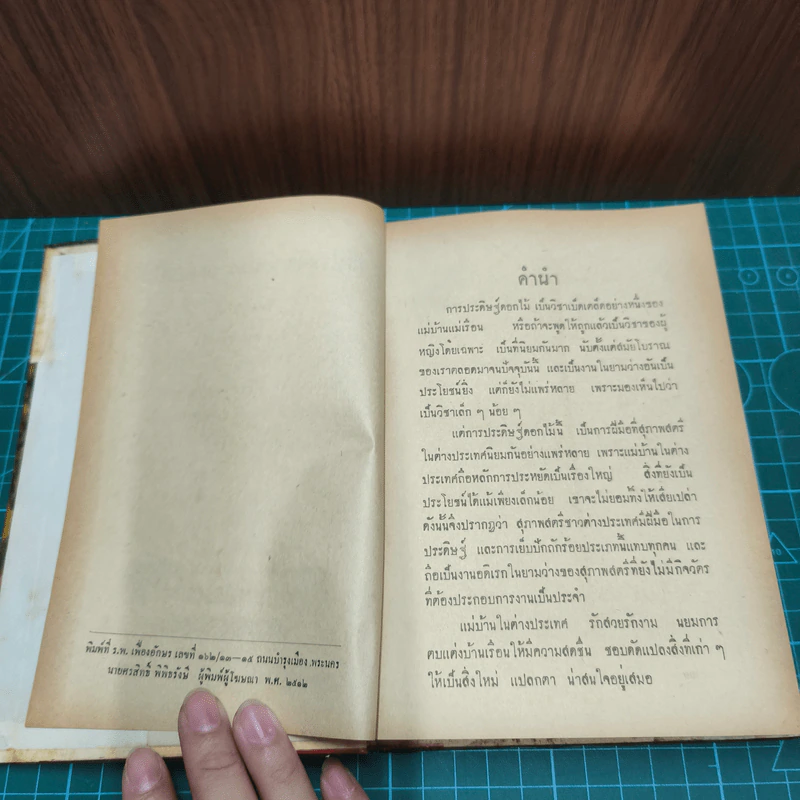 พิมพ์ที่ ร.พ. เฟื่องอักษร เลขที่ ๑๖๒/๑๓—๑๕ ถนนบำรุงเมือง พระนคร
นายศรสิทธิ์ พิพิธรังษี ผู้พิมพ์ผู้โฆษณา พ.ศ. ๒๕๑๒
คำนำ
การประดิษฐ์ดอกไม้ เป็นวิชาเบ็ดเตล็ดอย่างหนึ่งของ
แม่บ้านแม่เรือน หรือถ้าจะพูดให้ถูกแล้วเป็นวิชาของผู้
หญิงโดยเฉพาะ เป็นที่นิยมกันมาก นับตั้งแต่สมัยโบราณ
ของเราตลอดมาจนปัจจุบันนี้ และเป็นงานในยามว่างอันเป็น
ประโยชน์ยิ่ง แต่ก็ยังไม่แพร่หลาย เพราะมองเห็นไปว่า
เป็นวิชาเล็ก ๆ น้อย ๆ
แต่การประดิษฐ์ดอกไม้นี้ เป็นการฝีมือที่สุภาพสตรี
ในต่างประเทศนิยมกันอย่างแพร่หลาย เพราะแม่บ้านในต่าง
ประเทศถือหลักการประหยัดเป็นเรื่องใหญ่ สิ่งที่ยังเป็น
ประโยชน์ได้แม้เพียงเล็กน้อย เขาจะไม่ยอมทิ้งให้เสียเปล่า
ดังนั้นจึงปรากฏว่า สุภาพสตรีชาวต่างประเทศมีฝีมือในการ
ประดิษฐ์ และการเย็บปักถักร้อยประเภทนี้แทบทุกคน และ
ถือเป็นงานอดิเรกในยามว่างของสุภาพสตรีที่ยังไม่มีกิจวัตร
ที่ต้องประกอบการงานเป็นประจำ
แม่บ้านในต่างประเทศ รักสวยรักงาม นิยมการ
ตบแต่งบ้านเรือนให้มีความสดชื่น ชอบดัดแปลงสิ่งที่เก่า ๆ
ให้เป็นสิ่งใหม่ แปลกตา น่าสนใจอยู่เสมอ